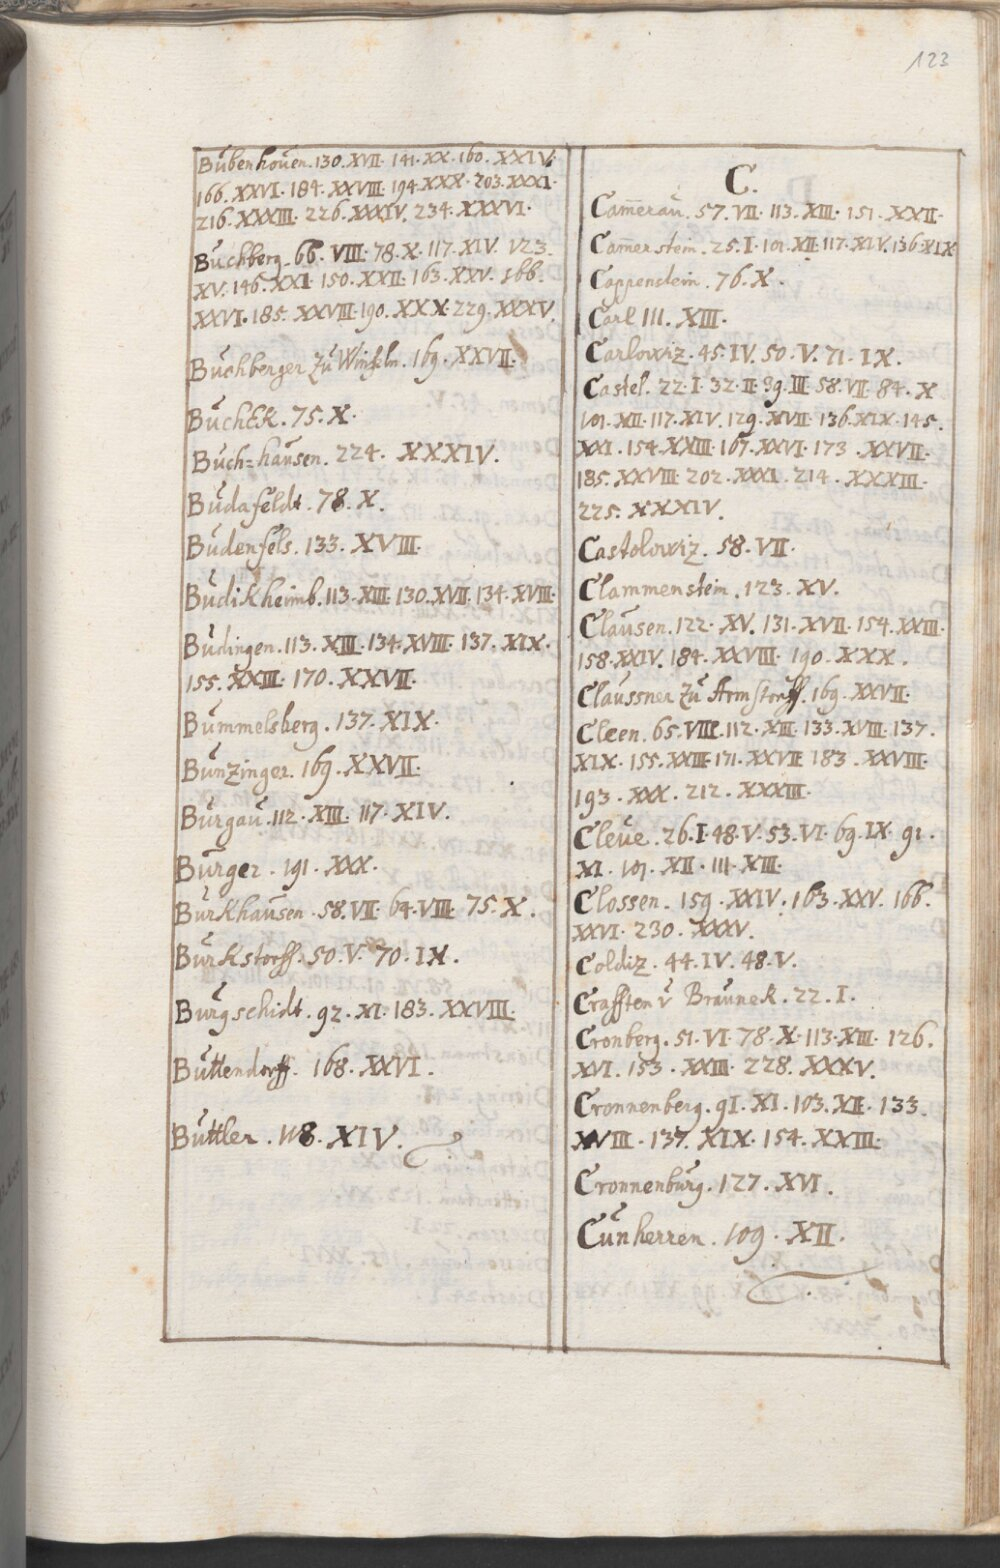 123
Bubenhouen. 130. XVII. 141. XX. 160. XXIV.
166. XXVI. 184. XXVIII. 194. XXX. 203. XXXI.
216. XXXIII. 226. XXXIV. 234. XXXVI.
Buchberg. 66. VIII. 78. X. 117. XIV. 123.
XV. 146. XXI. 150. XXII. 163. XXV. 166.
XXVI. 185. XXVIII. 190. XXX. 229. XXXV.
Buchberger zu 169. XXVII.
BuchEk. 75. X.
Buch=hausen. 224. XXXIV.
Budafeldt. 78. X.
Budenfels. 133. XVIII.
Budikheimb. 113. XIII. 130. XVII. 134. XVIII.
Budingen. 113. XIII. 134. XVIII. 137. XIX.
155. XXIII. 170. XXVII.
Bummelsberg. 137. XIX.
Bunzinger. 169. XXVII.
Burgau. 112. XIII. 117. XIV.
Burger. 191. XXX.
Burkhausen. 58. VII. 64. VIII. 75. X.
Burkstorff. 50. V. 70. IX.
Burgschidt. 92. XI. 183. XXVIII.
Buttendorff. 168. XXVI.
Buttler. 118. XIV.
C.
Cam̄erau. 57. VII. 113. XIII. 151. XXII.
Cam̄erstein. 25. I. 101. XII. 117. XIV. 136. XIX
Cappenstein. 76. X.
Carl 111. XIII.
Carlowiz. 45. IV. 50. V. 71. IX.
Castel. 22. I. 32. II. 39. III. 58. VII. 84. X
101. XII. 117. XIV. 129. XVII. 136. XIX. 145.
XXI. 154. XXIII. 167. XXVI. 173. XXVII.
185. XXVIII. 202. XXXI. 214. XXXIII.
225. XXXIV.
Castolowiz. 58. VII.
Clammenstein. 123. XV.
Clausen. 122. XV. 131. XVII. 154. XXIII.
158. XXIV. 184. XXVIII. 190. XXX.
Claussner zu Armstorff. 169. XXVII.
Cleen. 65. VIII. 112. XIII. 133. XVIII. 137.
XIX. 155. XXIII. 171. XXVII. 183. XXVIII.
193. XXX. 212. XXXIII.
Cleue. 26. I. 48. V. 53. VI. 69. IX. 91.
XI. 101. XII. 111. XIII.
Clossen. 159. XXIV. 163. XXV. 166.
XXVI. 230. XXXV.
Coldiz. 44. IV. 48. V.
Crafften v Braunek. 22. I.
Cronberg. 51. VI. 78. X. 113. XIII. 126.
XVI. 153. XXIII. 228. XXXV.
Cronnenberg. 91. XI. 103. XII. 133.
XVIII. 137. XIX. 154. XXIII.
Cronnenburg. 127. XVI.
Cunherren. 109. XII.